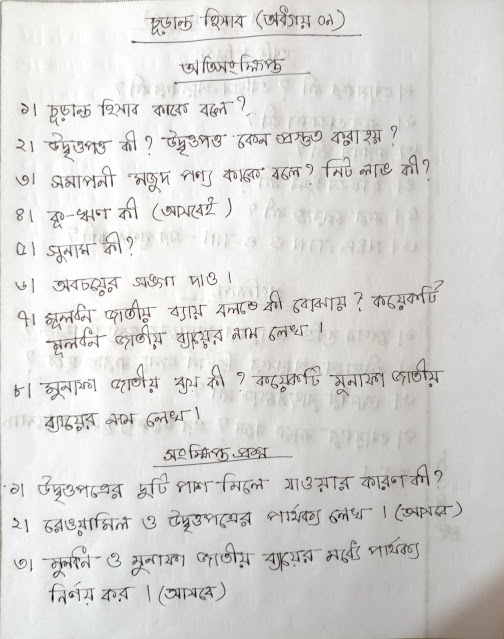 চূড়ান্ত হিসাব (অধ্যায় ০৯)
অতিসংক্ষিপ্ত
১। চূড়ান্ত হিসাব কাকে বলে?
২। উদ্বৃত্তপত্র কী? উদ্বৃত্তপত্র কেন প্রস্তুত করা হয়?
৩। সমাপনী মজুদ পণ্য কাকে বলে? নিট লাভ কী?
৪। কূ-ঋণ কী (আসবেই)
৫। সুনাম কী?
৬। অবচয়ের সঙ্গা দাও।
৭। মূলধন জাতীয় ব্যায় বলতে কী বোঝায়? কয়েকটি
মূলধন জাতীয় ব্যায়ের নাম লেখ।
৮। মুনাফা জাতীয় ব্যয় কী? কয়েকটি মুনাফা জাতীয়
ব্যায়ের নাম লেখ।
সংক্ষিপ্ত প্রশ্ন
১। উদ্বৃত্তপত্রের দুটি পাশ মিলে যাওয়ার কারণ কী?
২। রেওয়ামিল ও উদ্বৃত্তপত্রের পার্থক্য লেখ। (আসবে)
৩। মূলধন ও মুনাফা জাতীয় ব্যায়ের মধ্যে পার্থক্য
নির্ণয় কর। (আসবে)